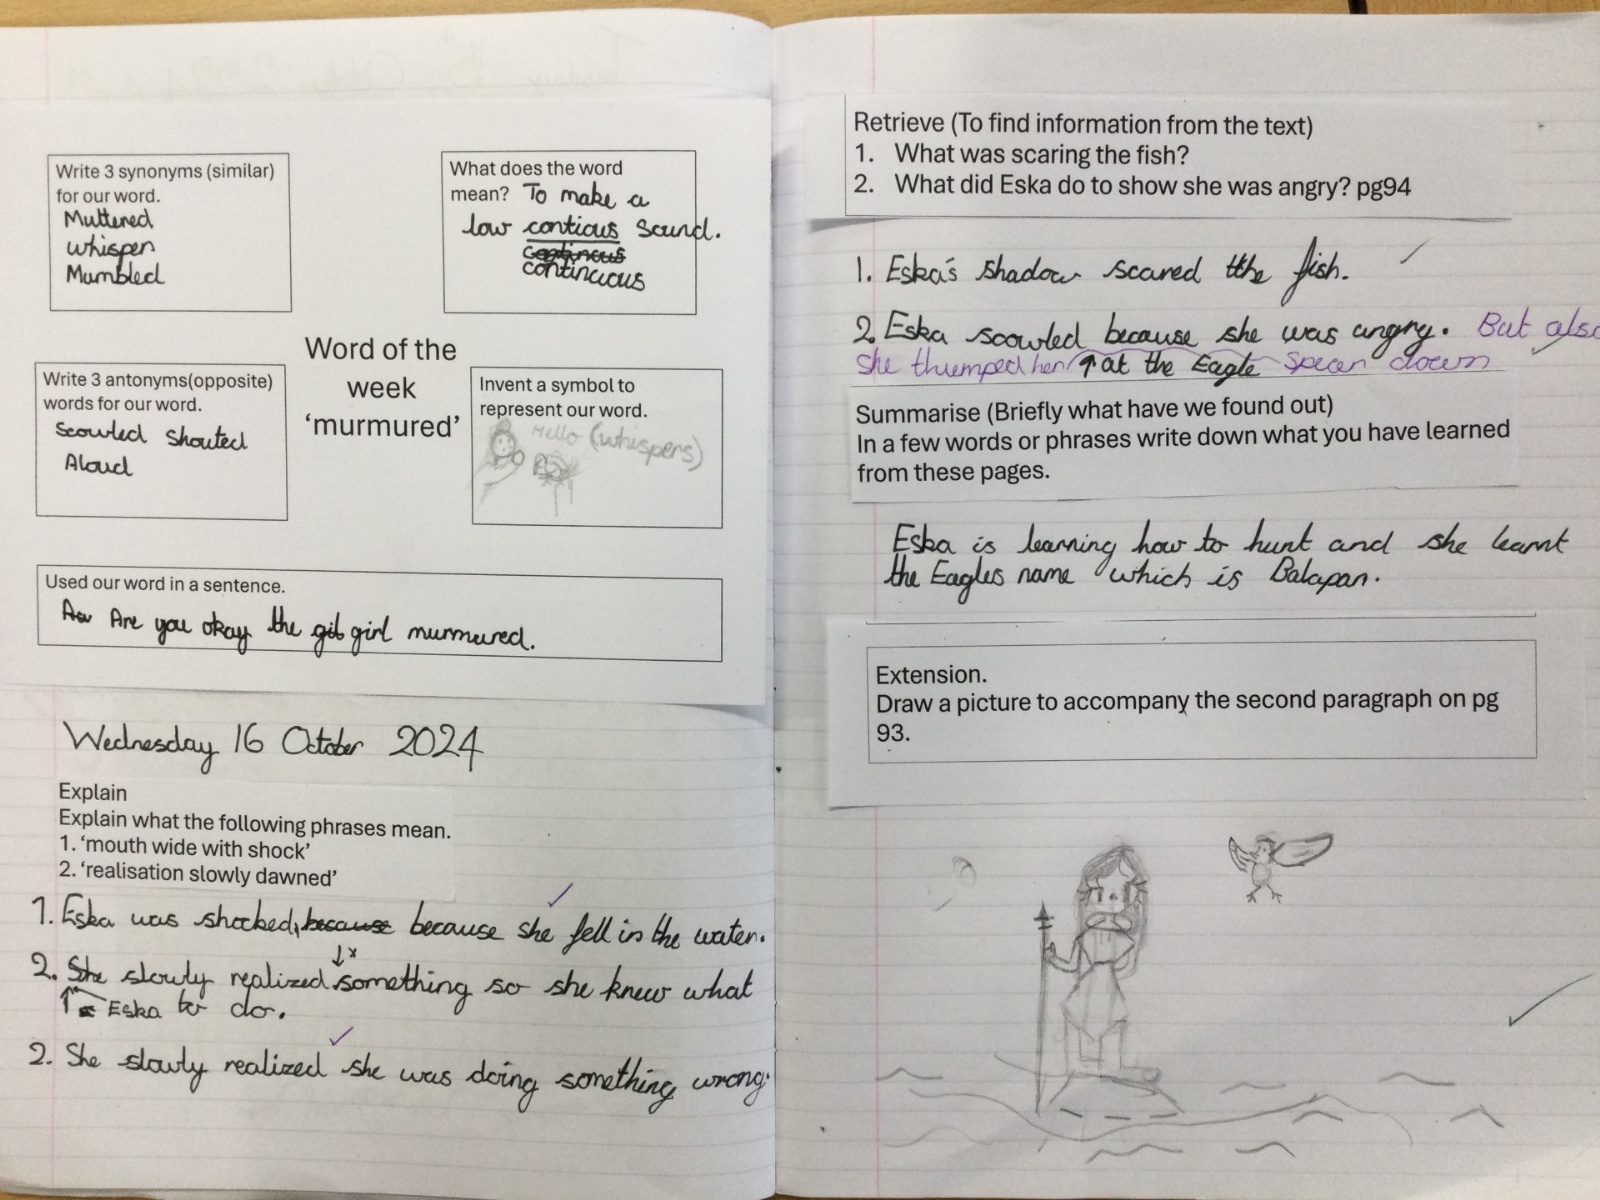 Write 3 synonyms (similar)
for our word.
Muttered
whisper
Mumbled
What does the word
mean? To make a
low contious Sound.
continuous
Write 3 antonyms(opposite)
words for our word.
Scowled Shouted
Aloud
Word of the
week
‘murmured’
Invent a symbol to
represent our word.
Hello (whispers)
Used our word in a sentence.
Are you okay the girl murmured.
Wednesday 16 October 2024
Explain
Explain what the following phrases mean.
1. ‘mouth wide with shock’
2. ‘realisation slowly dawned’
1. Eska was shocked, because because she fell in the water.
2. She slowly realized something so she knew what
Eska to do.
2. She slowly realized she was doing something wrong.
Retrieve (To find information from the text)
1. What was scaring the fish?
2. What did Eska do to show she was angry? pg94
1. Eska's shadow scared the fish.
2. Eska scowled because she was angry. But also
she thumped her at the Eagle spear down
Summarise (Briefly what have we found out)
In a few words or phrases write down what you have learned
from these pages.
Eska is learning how to hunt and she learnt
the Eagles name which is Balapan.
Extension.
Draw a picture to accompany the second paragraph on pg
93.